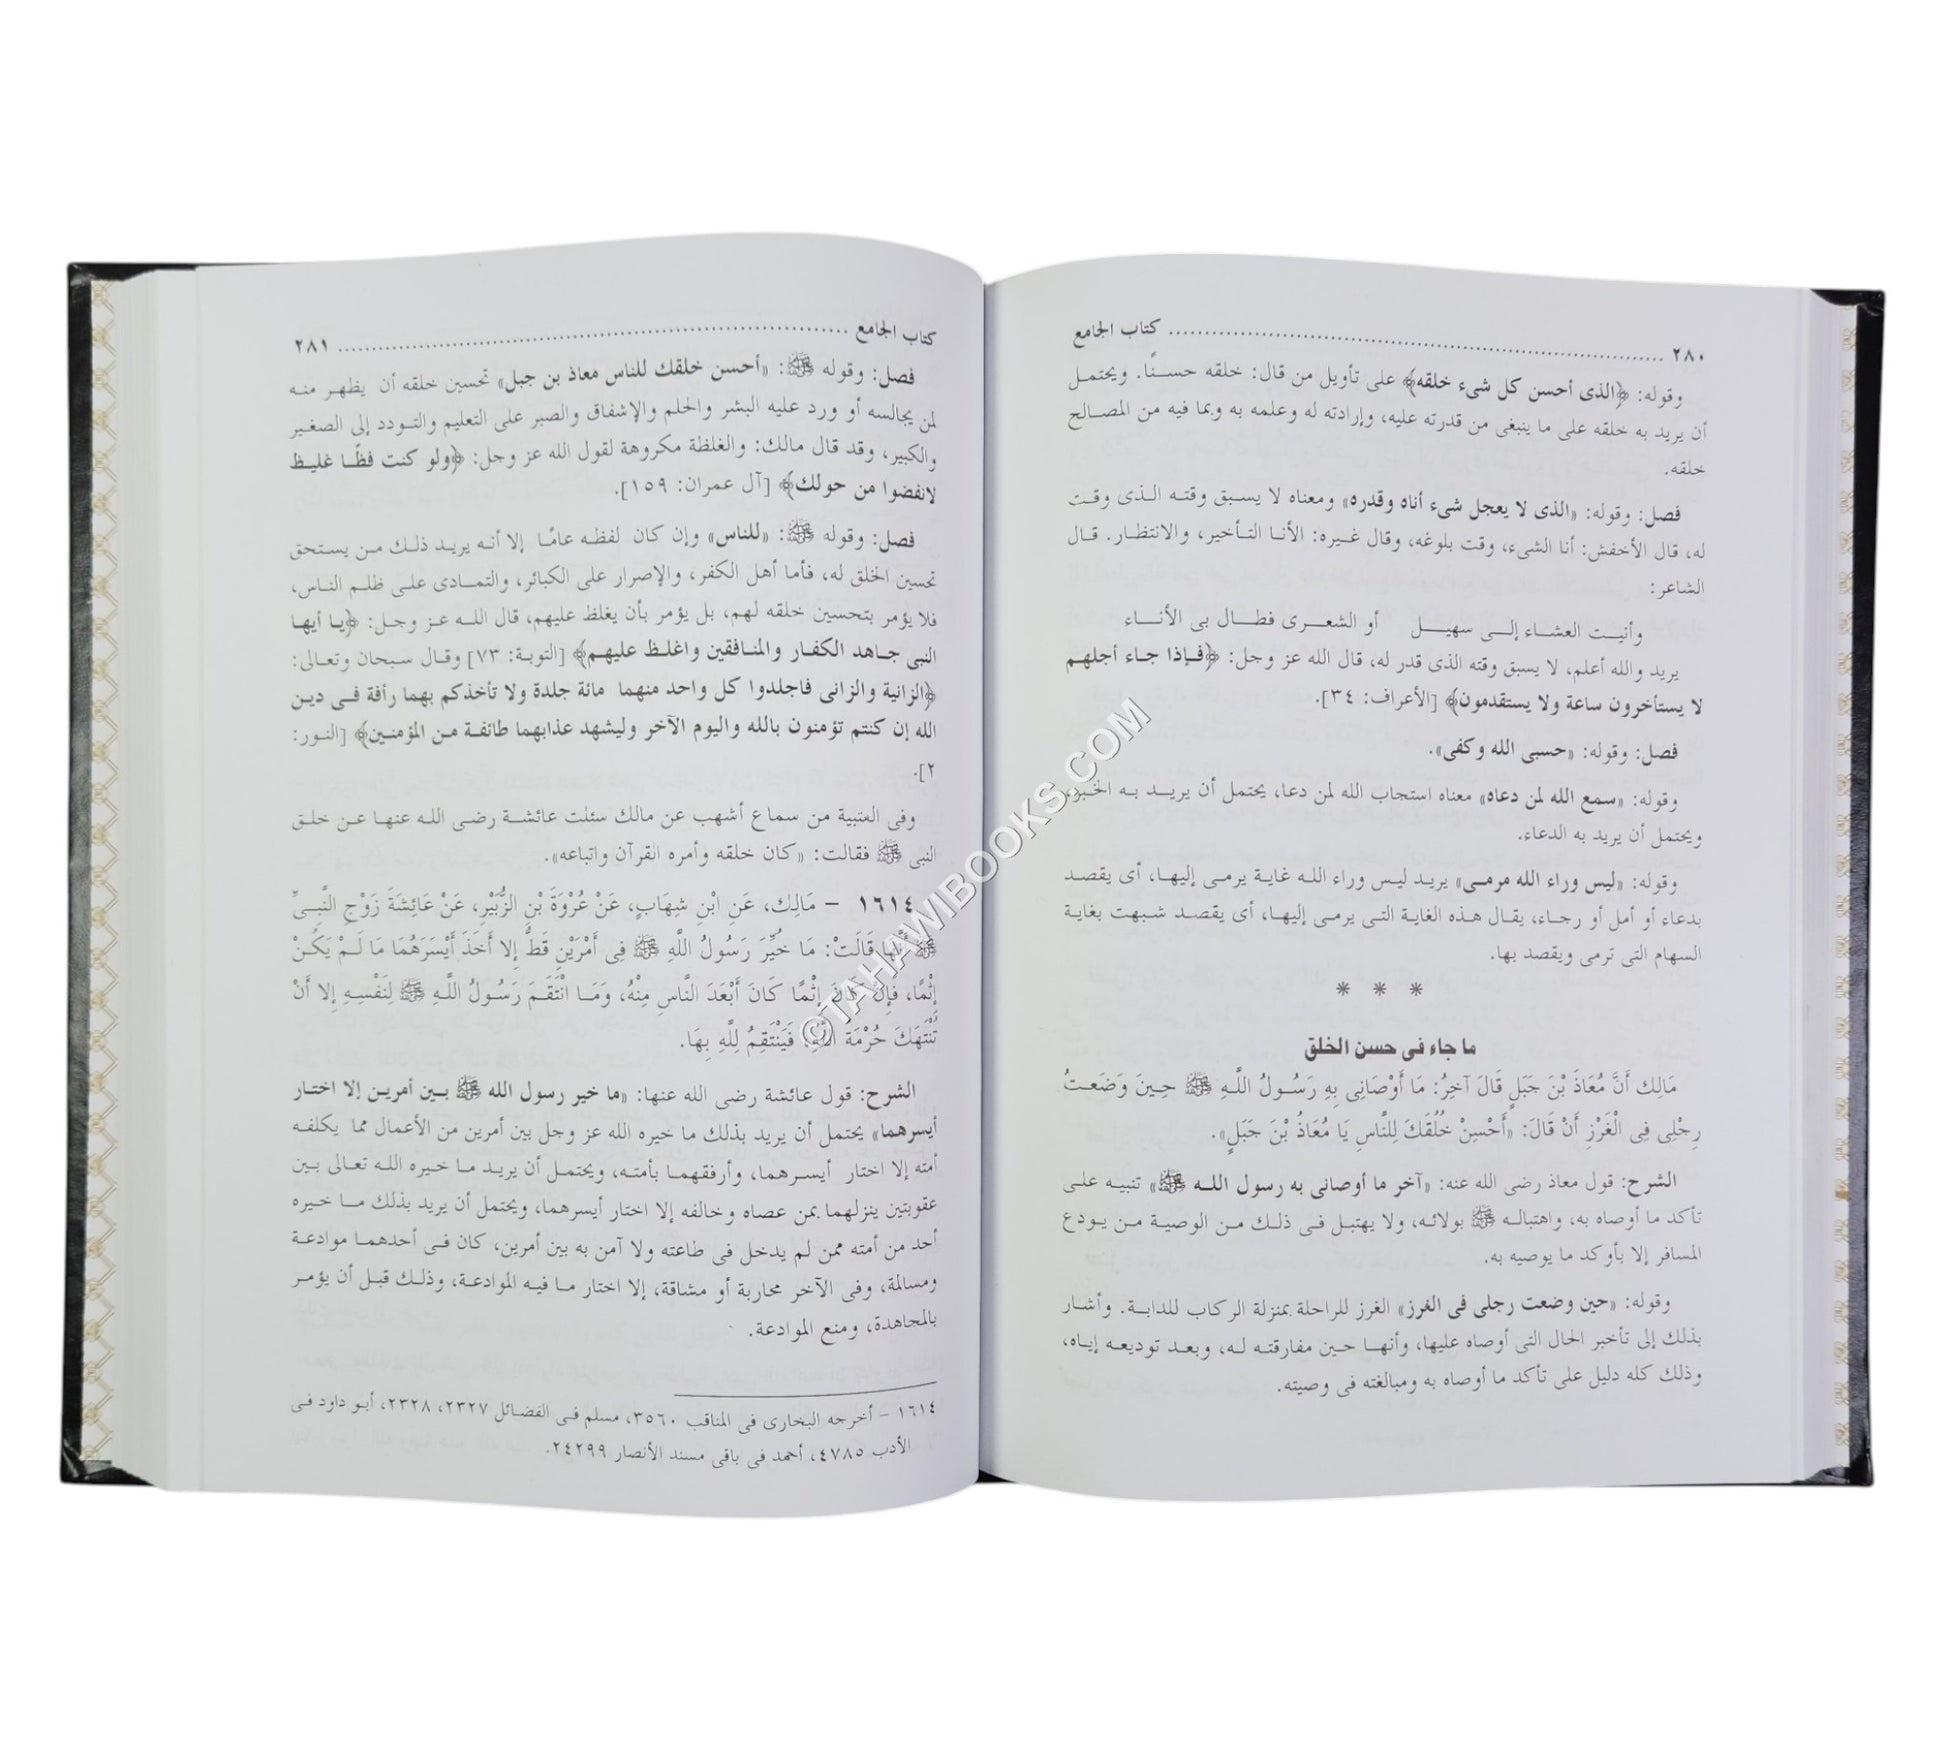 ٢٨٠ ........................................ كتاب الجامع
وقوله: ﴿الذى أحسن كل شىء خلقه﴾ على تأويل من قال: خلقه حسنًا. ويحتمل
أن يريد به خلقه على ما ينبغى من قدرته عليه، وإرادته له وعلمه به وبما فيه من المصالح
خلقه.
فصل: وقوله: «الذى لا يعجل شىء أناه وقدره» ومعناه لا يسبق وقته الذى وقت
له، قال الأخفش: أنا الشىء، وقت بلوغه، وقال غيره: الأنا التأخير، والانتظار. قال
الشاعر:
وأنيت العشاء إلى سهيل أو الشعرى فطال بى الأناء
يريد والله أعلم، لا يسبق وقته الذى قدر له، قال الله عز وجل: ﴿فإذا جاء أجلهم
لا يستأخرون ساعة ولا يستقدمون﴾ [الأعراف: ٣٤].
فصل: وقوله: «حسبى الله وكفى».
وقوله: «سمع الله لمن دعاه» معناه استجاب الله لمن دعا، يحتمل أن يريد به الخبر،
ويحتمل أن يريد به الدعاء.
وقوله: «ليس وراء الله مرمى» يريد ليس وراء الله غاية يرمى إليها، أى يقصد
بدعاء أو أمل أو رجاء، يقال هذه الغاية التى يرمى إليها، أى يقصد شبهت بغاية
السهام التى ترمى ويقصد بها.
* * *
ما جاء فى حسن الخلق
مَالِك أَنَّ مُعَاذَ بْنَ جَبَلٍ قَالَ آخِرُ: مَا أَوْصَانِى بِهِ رَسُولُ اللَّهِ ﷺ حِينَ وَضَعْتُ
رِجْلِى فِى الْغَرْزِ أَنْ قَالَ: «أَحْسِنْ خُلُقَكَ لِلنَّاسِ يَا مُعَاذُ بْنَ جَبَلٍ».
الشرح: قول معاذ رضى الله عنه: «آخر ما أوصانى به رسول الله ﷺ» تنبيه على
تأكد ما أوصاه به، واهتباله ﷺ بولائه، ولا يهتبل فى ذلك من الوصية من يودع
المسافر إلا بأوكد ما يوصيه به.
وقوله: «حين وضعت رجلى فى الغرز» الغرز للراحلة بمنزلة الركاب للدابة. وأشار
بذلك إلى تأخير الحال التى أوصاه عليها، وأنها حين مفارقته له، وبعد توديعه إياه،
وذلك كله دليل على تأكد ما أوصاه به ومبالغته فى وصيته.
كتاب الجامع ........................................ ٢٨١
فصل: وقوله ﷺ: «أحسن خلقك للناس معاذ بن جبل» تحسين خلقه أن يظهر منه
لمن يجالسه أو ورد عليه البشر والحلم والإشفاق والصبر على التعليم والتودد إلى الصغير
والكبير، وقد قال مالك: والغلظة مكروهة لقول الله عز وجل: ﴿ولو كنت فظًا غليظ
لانفضوا من حولك﴾ [آل عمران: ١٥٩].
فصل: وقوله ﷺ: «للناس» وإن كان لفظه عامًا إلا أنه يريد ذلك من يستحق
تحسين الخلق له، فأما أهل الكفر، والإصرار على الكبائر، والتمادى على ظلم الناس،
فلا يؤمر بتحسين خلقه لهم، بل يؤمر بأن يغلظ عليهم، قال الله عز وجل: ﴿يا أيها
النبى جاهد الكفار والمنافقين واغلظ عليهم﴾ [التوبة: ٧٣] وقال سبحان وتعالى:
﴿الزانية والزانى فاجلدوا كل واحد منهما مائة جلدة ولا تأخذكم بهما رأفة فى دين
الله إن كنتم تؤمنون بالله واليوم الآخر وليشهد عذابهما طائفة من المؤمنين﴾ [النور:
٢].
وفى العتبية من سماع أشهب عن مالك سئلت عائشة رضى الله عنها عن خلق
النبى ﷺ فقالت: «كان خلقه وأمره القرآن واتباعه».
١٦١٤ - مَالِك، عَنِ ابْنِ شِهَابٍ، عَنْ عُرْوَةَ بْنِ الزُّبَيْرِ، عَنْ عَائِشَةَ زَوْجِ النَّبِىِّ
ﷺ أَنَّهَا قَالَتْ: مَا خُيِّرَ رَسُولُ اللَّهِ ﷺ فِى أَمْرَيْنِ قَطُّ إِلا أَخَذَ أَيْسَرَهُمَا مَا لَمْ يَكُنْ
إِثْمًا، فَإِنْ كَانَ إِثْمًا كَانَ أَبْعَدَ النَّاسِ مِنْهُ، وَمَا انْتَقَمَ رَسُولُ اللَّهِ ﷺ لِنَفْسِهِ إِلا أَنْ
تُنْتَهَكَ حُرْمَةُ اللَّهِ، فَيَنْتَقِمُ لِلَّهِ بِهَا.
الشرح: قول عائشة رضى الله عنها: «ما خير رسول الله ﷺ بين أمرين إلا اختار
أيسرهما» يحتمل أن يريد بذلك ما خيره الله عز وجل بين أمرين من الأعمال مما يكلفه
أمته إلا اختار أيسرهما، وأرفقهما بأمته، ويحتمل أن يريد ما خيره الله تعالى بين
عقوبتين ينزلهما بمن عصاه وخالفه إلا اختار أيسرهما، ويحتمل أن يريد بذلك ما خيره
أحد من أمته ممن لم يدخل فى طاعته ولا آمن به بين أمرين، كان فى أحدهما موادعة
ومسالمة، وفى الآخر محاربة أو مشاقة، إلا اختار ما فيه الموادعة، وذلك قبل أن يؤمر
بالمجاهدة، ومنع الموادعة.
١٦١٤ - أخرجه البخارى فى المناقب ٣٥٦٠، مسلم فى الفضائل ٢٣٢٧، ٢٣٢٨، أبو داود فى
الأدب ٤٧٨٥، أحمد فى باقى مسند الأنصار ٢٤٢٩٩.
©TAHAWIBOOKS.COM